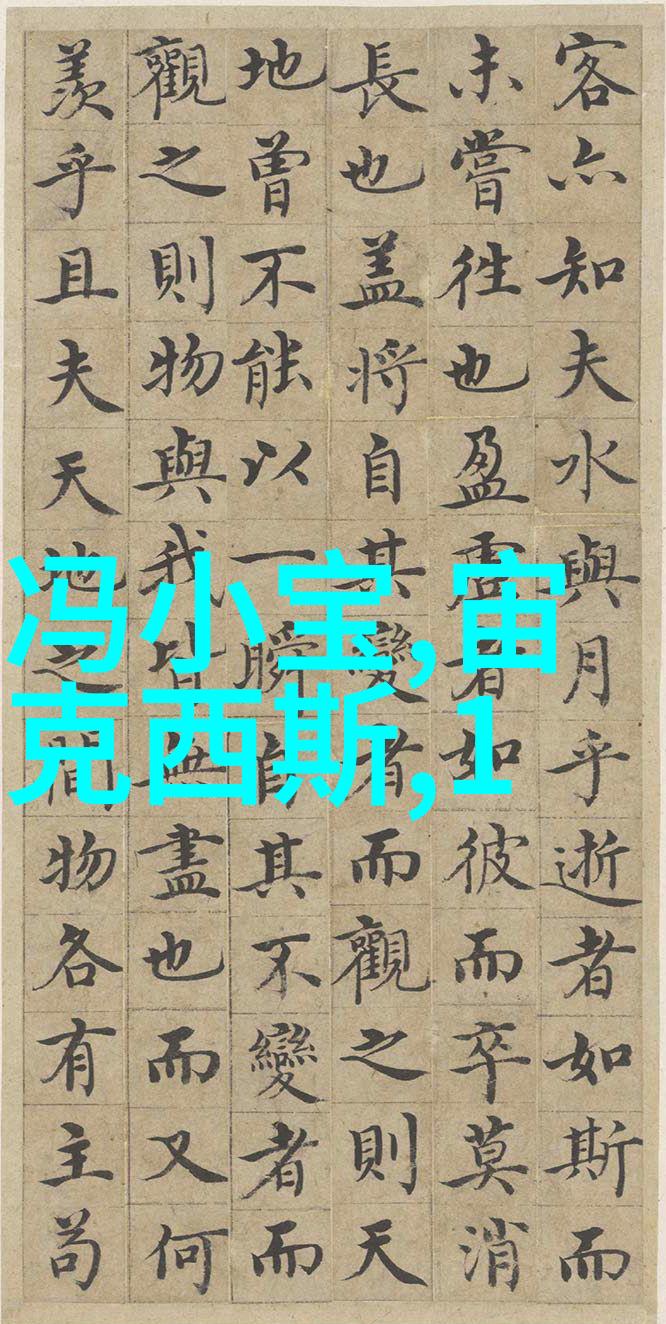 客亦知夫水與月乎逝者如斯而
未嘗往也盈虛者如彼而卒莫消
長也盖將自其變者而觀之則天
地曾不能以一瞬自其不變者而
觀之則物與我皆無盡也而又何
羨乎且夫天地之間物各有主苟
冯小宝,宙
克西斯,1